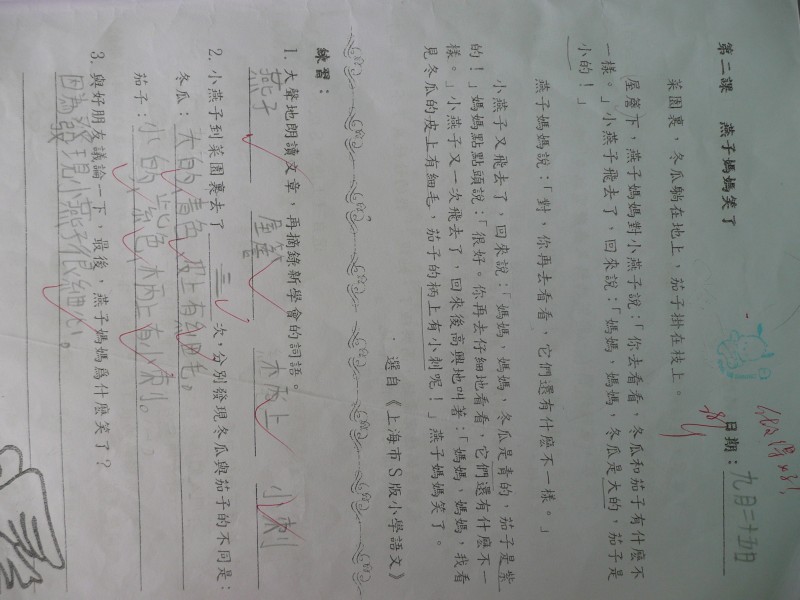 第二課　燕子媽媽笑了
日期：九月二十五日
菜園裏，冬瓜躺在地上，茄子掛在枝上。
屋簷下，燕子媽媽對小燕子說：「你去看看，冬瓜和茄子有什麼不
一樣。」小燕子飛去了，回來說：「媽媽，媽媽，冬瓜是大的，茄子是
小的！」
燕子媽媽說：「對，你再去看看，它們還有什麼不一樣。」
小燕子又飛去了，回來說：「媽媽，媽媽，冬瓜是青的，茄子是紫
的！」媽媽點點頭說：「很好。你再去仔細地看看，它們還有什麼不一
樣。」小燕子又一次飛去了，回來後高興地叫著：「媽媽，媽媽，我看
見冬瓜的皮上有細毛，茄子的柄上有小刺呢！」燕子媽媽笑了。
．選自《上海市S版小學語文》
練習：
1. 大聲地朗讀文章，再摘錄新學會的詞語。
燕子　屋簷　柄上　小刺
2. 小燕子到菜園裏去了三次，分別發現冬瓜與茄子的不同是：
冬瓜：大的青色皮上有細毛。
茄子：小的，紫色柄上有小刺。
3. 與好朋友議論一下，最後，燕子媽媽爲什麼笑了？
因為發現小燕子很細心。